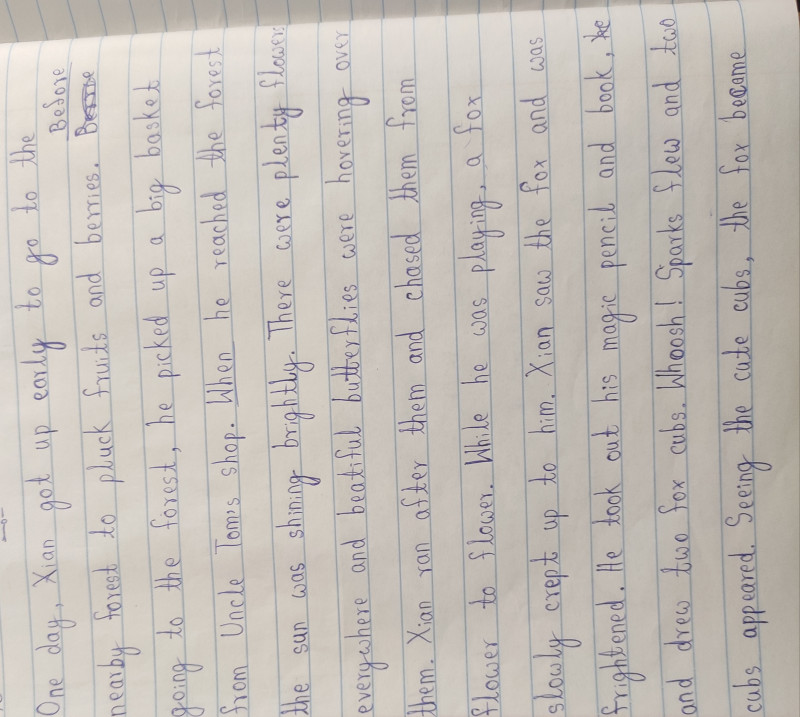 One day, Xian got up early to go to the
nearby forest to pluck fruits and berries. Before
going to the forest, he picked up a big basket
from Uncle Tom's shop. When he reached the forest
the sun was shining brightly. There were plenty flowers
everywhere and beatiful butterflies were hovering over
them. Xian ran after them and chased them from
flower to flower. While he was playing, a fox
slowly crept up to him. Xian saw the fox and was
frightened. He took out his magic pencil and book, he
and drew two fox cubs. Whoosh! Sparks flew and two
cubs appeared. Seeing the cute cubs, the fox became